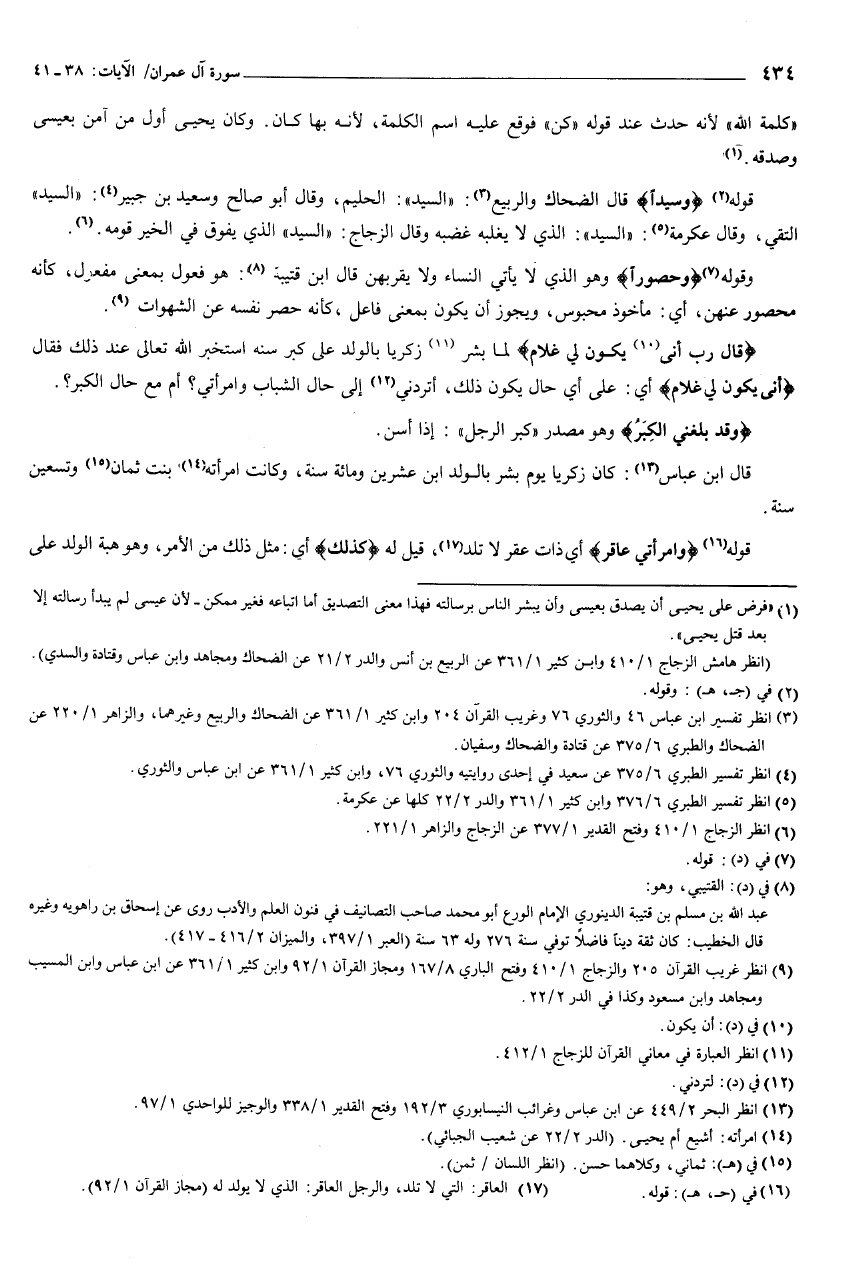 ٤٣٤ ــــــــــــــــــــ سورة آل عمران/ الآيات: ٣٨ - ٤١
«كلمة الله» لأنه حدث عند قوله «كن» فوقع عليه اسم الكلمة، لأنه بها كان. وكان يحيى أول من آمن بعيسى
وصدقه.(١)
قوله(٢) ﴿وسيداً﴾ قال الضحاك والربيع(٣): «السيد»: الحليم، وقال أبو صالح وسعيد بن جبير(٤): «السيد»
التقي، وقال عكرمة(٥): «السيد»: الذي لا يغلبه غضبه وقال الزجاج: «السيد» الذي يفوق في الخير قومه.(٦).
وقوله(٧) ﴿وحصوراً﴾ وهو الذي لا يأتي النساء ولا يقربهن قال ابن قتيبة (٨): هو فعول بمعنى مفعول، كأنه
محصور عنهن، أي: مأخوذ محبوس، ويجوز أن يكون بمعنى فاعل ،كأنه حصر نفسه عن الشهوات (٩).
﴿قال رب أنى(١٠) يكون لي غلام﴾ لما بشر (١١) زكريا بالولد على كبر سنه استخبر الله تعالى عند ذلك فقال
﴿أنى يكون لي غلام﴾ أي: على أي حال يكون ذلك، أتردني(١٢) إلى حال الشباب وامرأتي؟ أم مع حال الكبر؟.
﴿وقد بلغني الكِبَرُ﴾ وهو مصدر «كبر الرجل» : إذا أسن.
قال ابن عباس(١٣) : كان زكريا يوم بشر بالولد ابن عشرين ومائة سنة، وكانت امرأته(١٤) بنت ثمان(١٥) وتسعين
سنة.
قوله(١٦) ﴿وامرأتي عاقر﴾ أي ذات عقر لا تلد(١٧)، قيل له ﴿كذلك﴾ أي: مثل ذلك من الأمر، وهو هبة الولد على
(١) «فرض على يحيى أن يصدق بعيسى وأن يبشر الناس برسالته فهذا معنى التصديق أما اتباعه فغير ممكن - لأن عيسى لم يبدأ رسالته إلا
بعد قتل يحيى».
(انظر هامش الزجاج ٤١٠/١ وابن كثير ٣٦١/١ عن الربيع بن أنس والدر ٢١/٢ عن الضحاك ومجاهد وابن عباس وقتادة والسدي).
(٢) في (جـ، هـ) : وقوله.
(٣) انظر تفسير ابن عباس ٤٦ والثوري ٧٦ وغريب القرآن ٢٠٤ وابن كثير ٣٦١/١ عن الضحاك والربيع وغيرهما، والزاهر ٢٢٠/١ عن
الضحاك والطبري ٣٧٥/٦ عن قتادة والضحاك وسفيان.
(٤) انظر تفسير الطبري ٣٧٥/٦ عن سعيد في إحدى روايتيه والثوري ٧٦، وابن كثير ٣٦١/١ عن ابن عباس والثوري.
(٥) انظر تفسير الطبري ٣٧٦/٦ وابن كثير ٣٦١/١ والدر ٢٢/٢ كلها عن عكرمة.
(٦) انظر الزجاج ٤١٠/١ وفتح القدير ٣٧٧/١ عن الزجاج والزاهر ٢٢١/١.
(٧) في (د) : قوله.
(٨) في (د): القتيبي، وهو:
عبد الله بن مسلم بن قتيبة الدينوري الإمام الورع أبو محمد صاحب التصانيف في فنون العلم والأدب روى عن إسحاق بن راهويه وغيره
قال الخطيب: كان ثقة ديناً فاضلاً توفي سنة ٢٧٦ وله ٦٣ سنة (العبر ٣٩٧/١، والميزان ٤١٦/٢ - ٤١٧).
(٩) انظر غريب القرآن ٢٠٥ والزجاج ٤١٠/١ وفتح الباري ١٦٧/٨ ومجاز القرآن ٩٢/١ وابن كثير ٣٦١/١ عن ابن عباس وابن المسيب
ومجاهد وابن مسعود وكذا في الدر ٢٢/٢.
(١٠) في (د): أن يكون.
(١١) انظر العبارة في معاني القرآن للزجاج ٤١٢/١.
(١٢) في (د): لتردني.
(١٣) انظر البحر ٤٤٩/٢ عن ابن عباس وغرائب النيسابوري ١٩٢/٣ وفتح القدير ٣٣٨/١ والوجيز للواحدي ٩٧/١.
(١٤) امرأته: أشيع أم يحيى. (الدر ٢٢/٢ عن شعيب الجبائي).
(١٥) في (هـ): ثماني، وكلاهما حسن. (انظر اللسان / ثمن).
(١٦) في (حـ، هـ): قوله. (١٧) العاقر: التي لا تلد، والرجل العاقر: الذي لا يولد له (مجاز القرآن ٩٢/١).